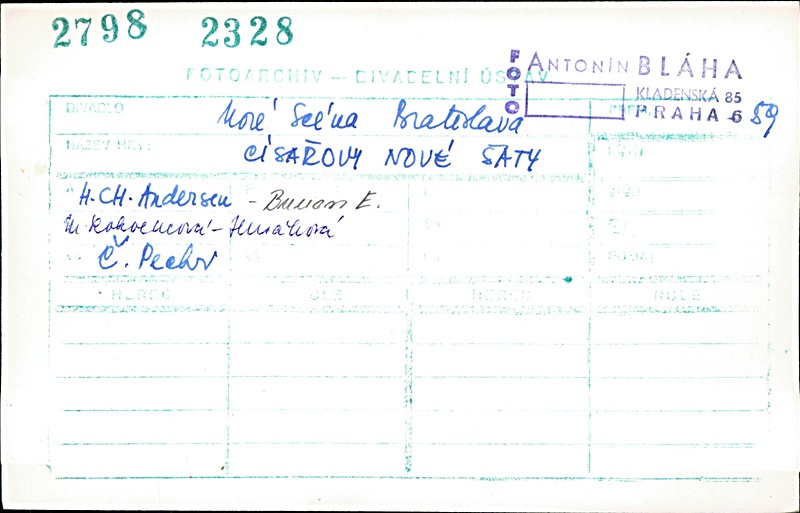 2798 2328
FOTOARCHIV – DIVADELNÍ ÚSTAV
FOTO ANTONÍN BLÁHA
KLADENSKÁ 85
PRAHA 6
59
DIVADLO
Nové Scéna Bratislava
NÁZEV HRY
CÍSAŘOVY NOVÉ ŠATY
H. CH. Andersen - Burian E.
Č.
HEREC ROLE HEREC ROLE